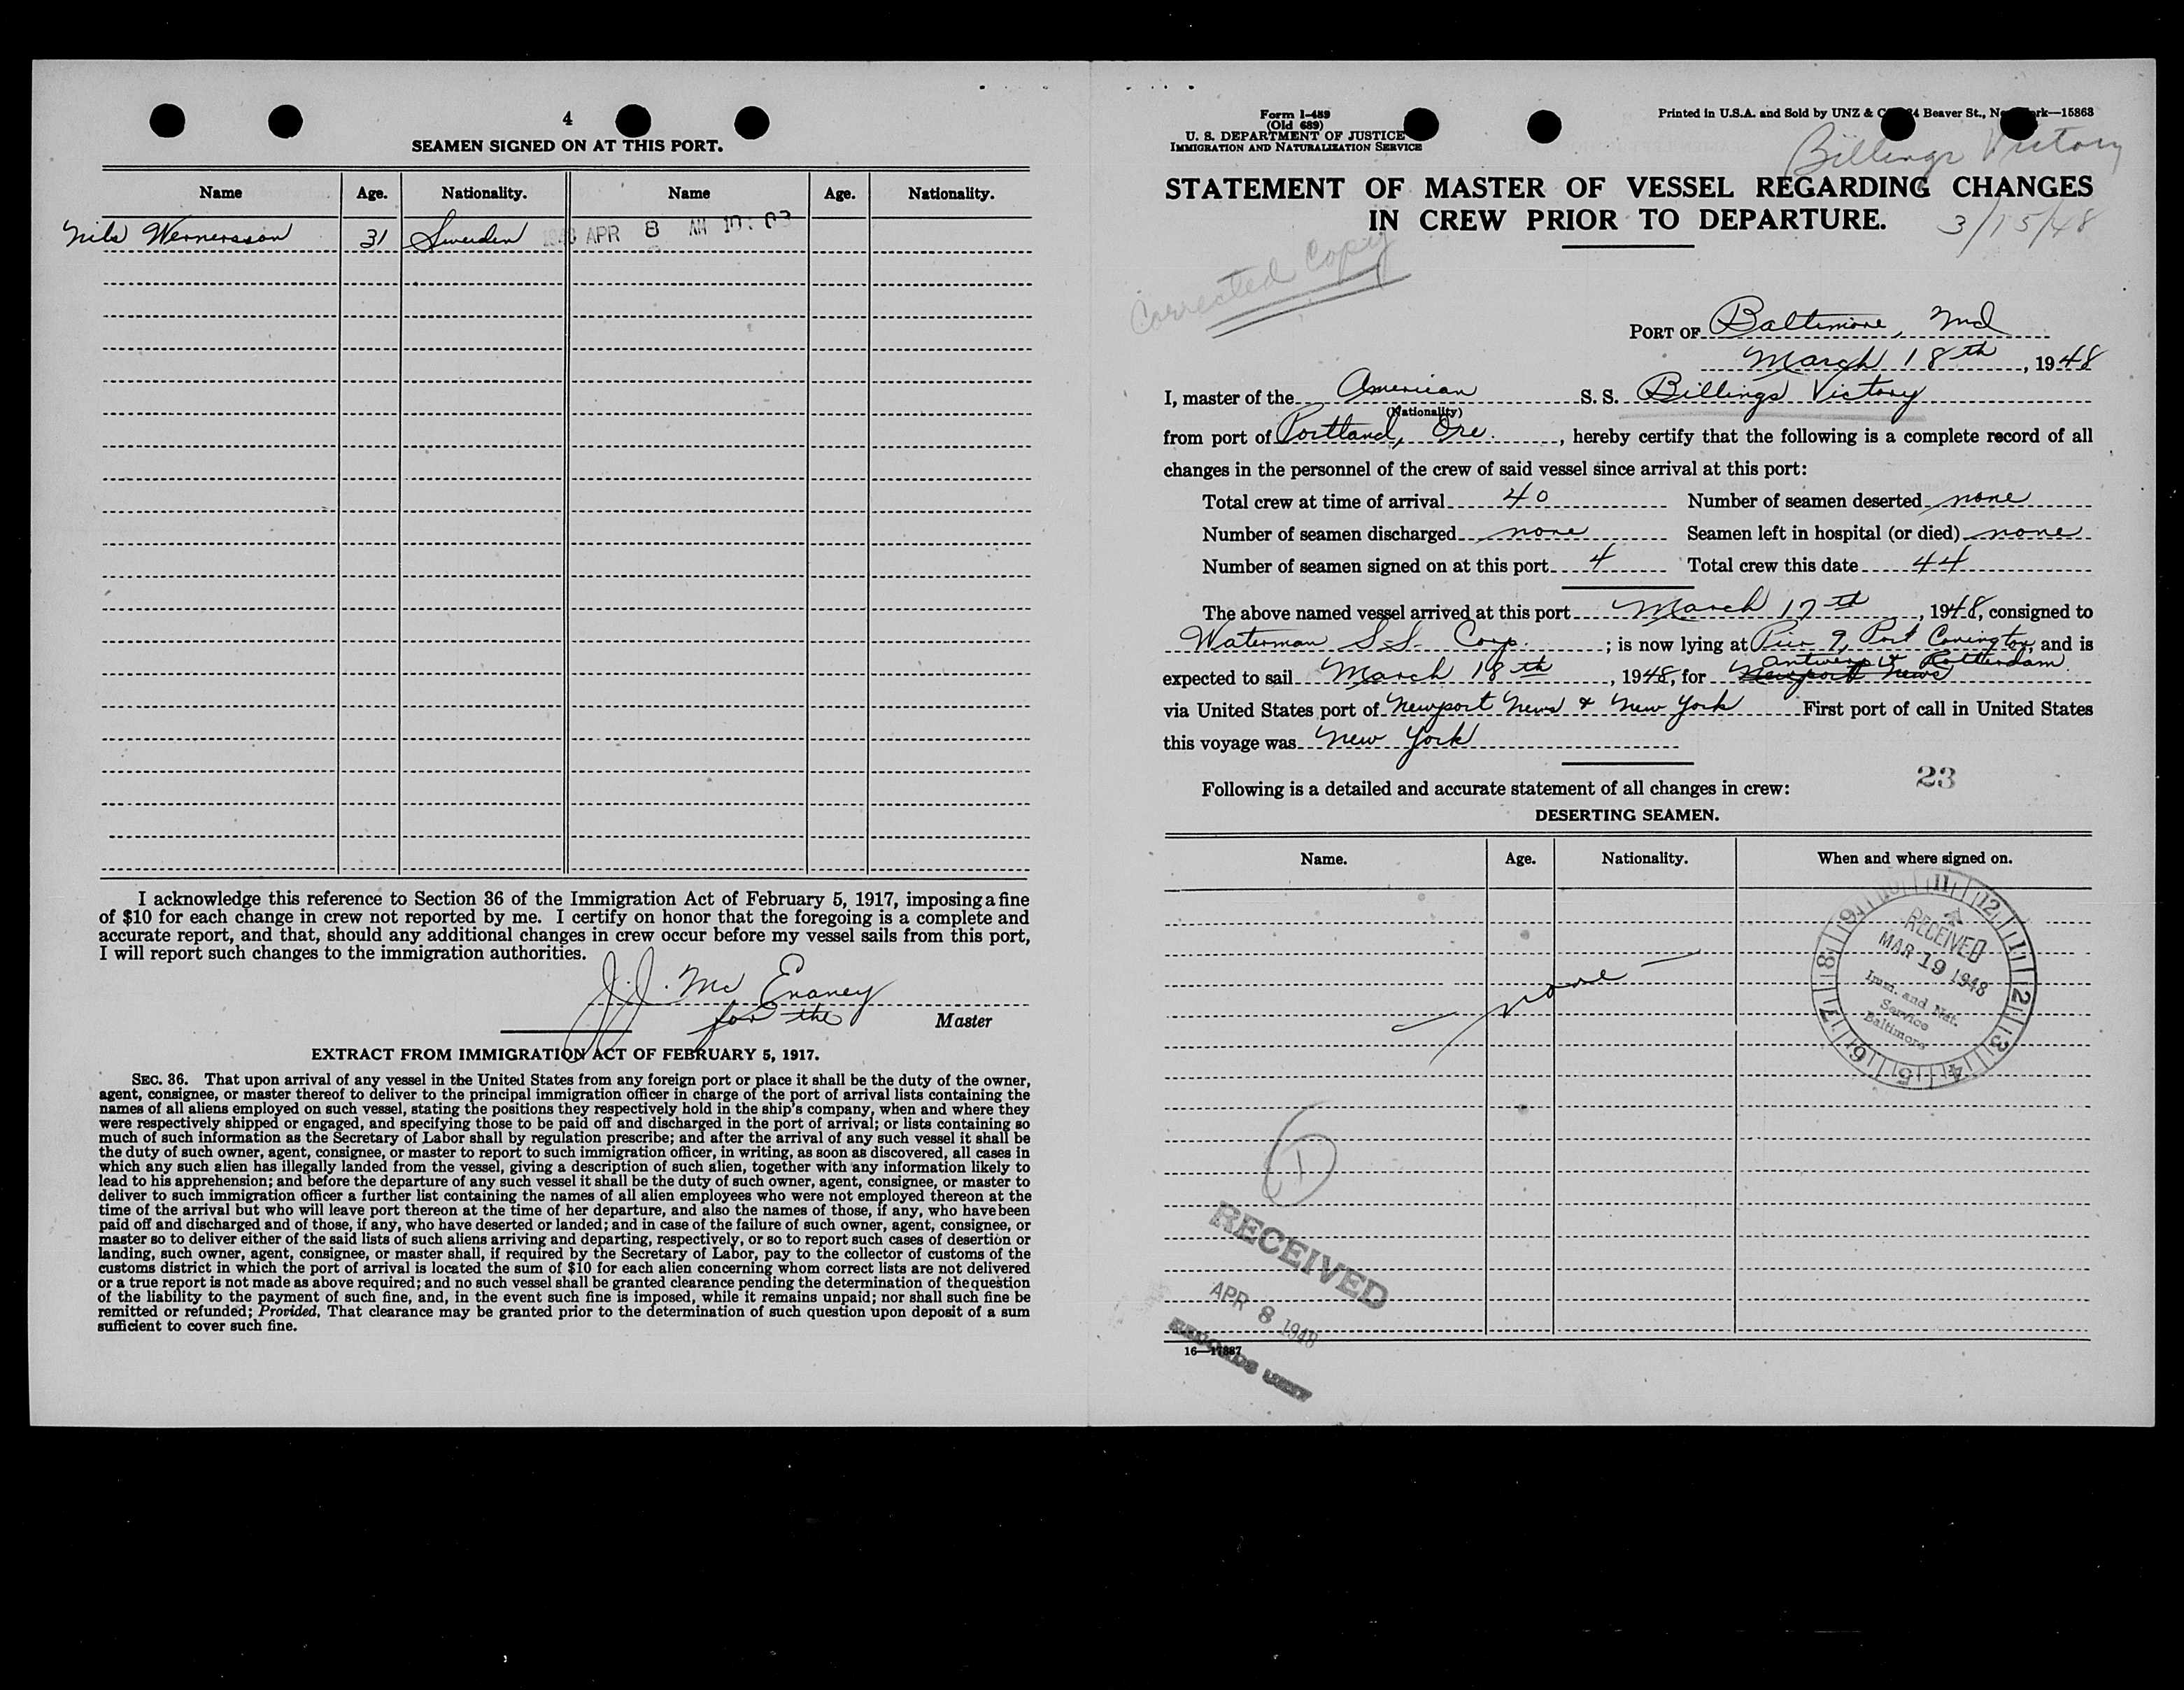 4
SEAMEN SIGNED ON AT THIS PORT.
Name Age. Nationality. Name Age. Nationality.
Nils Wernersson 31 Sweden APR 8 AM 10:03
I acknowledge this reference to Section 36 of the Immigration Act of February 5, 1917, imposing a fine
of $10 for each change in crew not reported by me. I certify on honor that the foregoing is a complete and
accurate report, and that, should any additional changes in crew occur before my vessel sails from this port,
I will report such changes to the immigration authorities.
J.J. Mc Enaney
for the Master
EXTRACT FROM IMMIGRATION ACT OF FEBRUARY 5, 1917.
SEC. 36. That upon arrival of any vessel in the United States from any foreign port or place it shall be the duty of the owner,
agent, consignee, or master thereof to deliver to the principal immigration officer in charge of the port of arrival lists containing the
names of all aliens employed on such vessel, stating the positions they respectively hold in the ship's company, when and where they
were respectively shipped or engaged, and specifying those to be paid off and discharged in the port of arrival; or lists containing so
much of such information as the Secretary of Labor shall by regulation prescribe; and after the arrival of any such vessel it shall be
the duty of such owner, agent, consignee, or master to report to such immigration officer, in writing, as soon as discovered, all cases in
which any such alien has illegally landed from the vessel, giving a description of such alien, together with any information likely to
lead to his apprehension; and before the departure of any such vessel it shall be the duty of such owner, agent, consignee, or master to
deliver to such immigration officer a further list containing the names of all alien employees who were not employed thereon at the
time of the arrival but who will leave port thereon at the time of her departure, and also the names of those, if any, who have been
paid off and discharged and of those, if any, who have deserted or landed; and in case of the failure of such owner, agent, consignee, or
master so to deliver either of the said lists of such aliens arriving and departing, respectively, or so to report such cases of desertion or
landing, such owner, agent, consignee, or master shall, if required by the Secretary of Labor, pay to the collector of customs of the
customs district in which the port of arrival is located the sum of $10 for each alien concerning whom correct lists are not delivered
or a true report is not made as above required; and no such vessel shall be granted clearance pending the determination of the question
of the liability to the payment of such fine, and, in the event such fine is imposed, while it remains unpaid; nor shall such fine be
remitted or refunded; Provided, That clearance may be granted prior to the determination of such question upon deposit of a sum
sufficient to cover such fine.
Form I-489
(Old 689)
U. S. DEPARTMENT OF JUSTICE
IMMIGRATION AND NATURALIZATION SERVICE
Printed in U.S.A. and Sold by UNZ & 4 Beaver St., 15863
Billings Victory
STATEMENT OF MASTER OF VESSEL REGARDING CHANGES
IN CREW PRIOR TO DEPARTURE.
3/15/48
Corrected Copy
PORT OF Baltimore, Md
March 18th, 1948
I, master of the American S. S. Billings Victory
(Nationality)
from port of Portland, Ore., hereby certify that the following is a complete record of all
changes in the personnel of the crew of said vessel since arrival at this port:
Total crew at time of arrival 40 Number of seamen deserted none
Number of seamen discharged none Seamen left in hospital (or died) none
Number of seamen signed on at this port 4 Total crew this date 44
The above named vessel arrived at this port March 17th, 1948, consigned to
Waterman S.S. Corp.; is now lying at Pier 9, Port Covington, and is
Antwerp & Rotterdam
expected to sail March 18th, 1948, for Newport News
via United States port of Newport News & New York First port of call in United States
this voyage was New York
23
Following is a detailed and accurate statement of all changes in crew:
DESERTING SEAMEN.
Name. Age. Nationality. When and where signed on.
11 12 1 2 3 4 5 6 7 8 9 10
RECEIVED
MAR 19 1948
Imm. and Nat.
Service
Baltimore
none
1
RECEIVED
APR 8 1948
RECORDS
16—17887